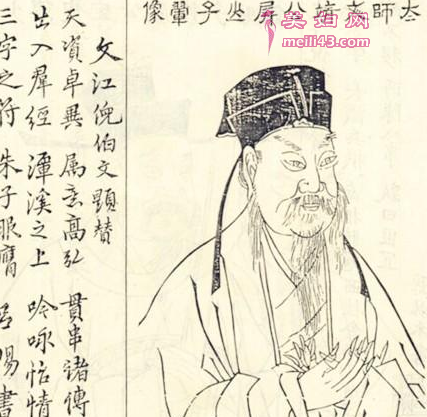 太師文靖公屏山子翬像
美如网
meili43.com
文江倪伯文題贊
天資卓異 属意高弘 貫串諸傳
出入羣經 潭溪之上 吟咏恬情
三字之符 朱子服膺